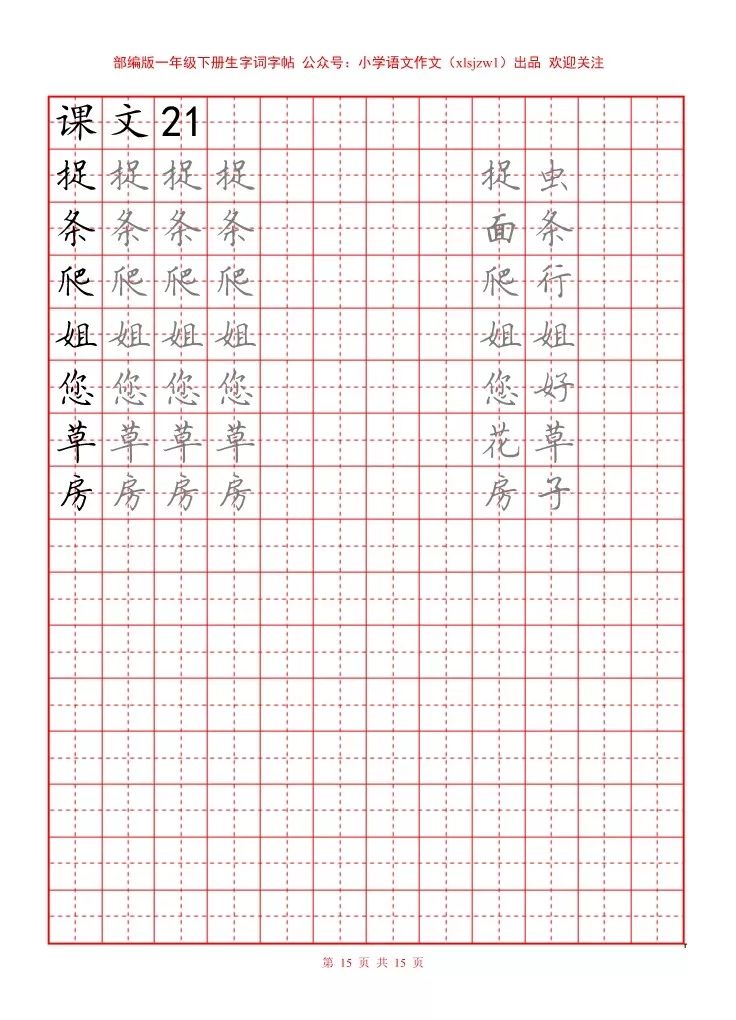 部编版一年级下册生字词字帖 公众号：小学语文作文（xlsjzw1）出品 欢迎关注
课文21
捉捉捉捉 捉虫
条条条条 面条
爬爬爬爬 爬行
姐姐姐姐 姐姐
您您您您 您好
草草草草 花草
房房房房 房子
第 15 页 共 15 页